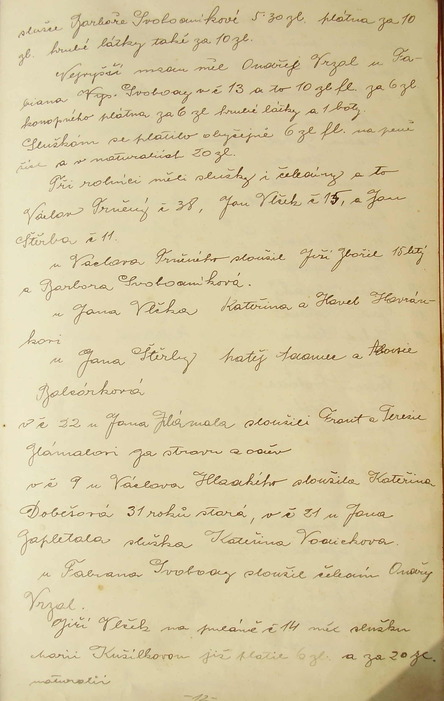 služce Barboře Svobodníkové 5·30 zl. plátna za 10
zl. hrubé látky také za 10 zl.
Nejvyšší mzdu měl Ondřej Vrzal u Fa-
biana Svobody v č 13 a to 10 zl fl. za 6 zl
konopného plátna za 6 zl hrubé látky a 1 boty
Služkám se platilo obyčejně 6 zl fl. na peně
zích a v naturaliích 20 zl.
Při rolnici měli služky i čeledíny a to
Václav Trněný č 38, Jan Vlček č 15, a Jan
Štěrba č 11.
u Václava Trněného sloužil Jiří Zbořil 15 letý
a Barbora Svobodníková.
u Jana Vlčka Kateřina a Havel Havrán-
kovi
u Jana Štěrby Matěj Adamec a
Balcárková
v č 22 u Jana Hlámala sloužili Frant a Terezie
Hlámalovi za stravu a oděv
v č 9 u Václava Hladkého sloužila Kateřina
Dobešová 31 roků stará, v č 21 u Jana
Zapletala služka Kateřina Vodichova.
u Fabiana Svobody sloužil čeledín Ondřej
Vrzal.
Jiří Vlček na č 14 měl služku
Marii Kušilkovou již platil 6 zl. a za 20 zl.
naturalií
-12-